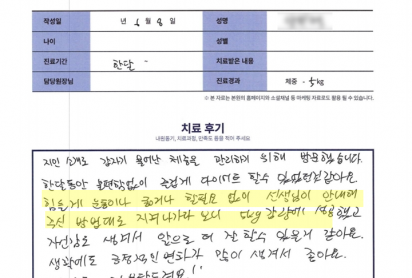 작성일 년 6월 8일 성명
나이 성별
진료기간 한달 치료받은 내용
담당원장님 진료경과 체중 -5kg
※ 본 자료는 본원의 홈페이지와 소셜채널 등 마케팅 자료로도 활용 될 수 있습니다.
치료 후기
내원동기, 치료과정, 만족도 등을 적어 주세요
지인 소개로 갑자기 불어난 체중을 관리하기 위해 방문했습니다.
한달동안 불편함없이 즐겁게 다이어트 할수 있었던것같아요
힘들게 운동이나 굶거나 할필요 없이 선생님이 안내해
주신 방법대로 지켜나가다 보니 5kg 감량에 성공했고
자신감도 생겨서 앞으로 더 잘 할수 있을거 같아요.
생각에도 긍정적인 변화가 많이 생겨서 좋아요.